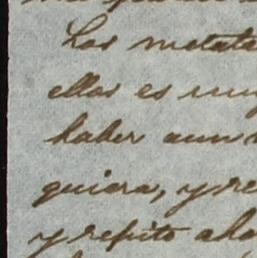 Las metate
ellas es muy
haber aun
quiera, y re
y repito aho